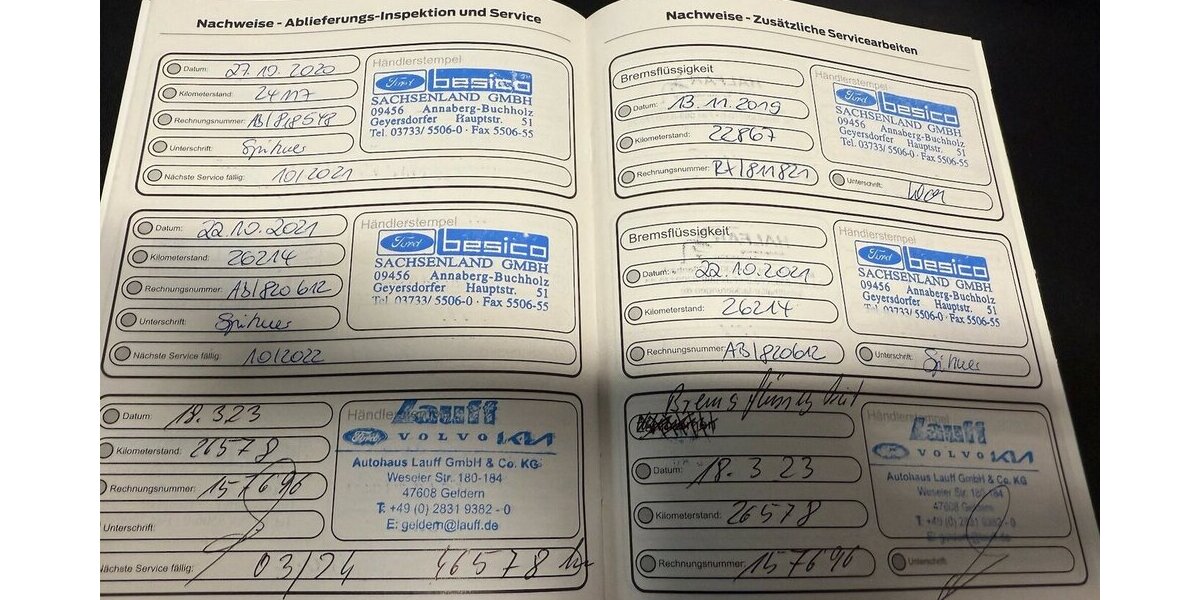 Nachweise - Ablieferungs-Inspektion und Service
Datum: 27.10.2020
Kilometerstand: 24117
Rechnungsnummer: AB/818548
Unterschrift:
Nächste Service fällig: 10/2021
Händlerstempel
Ford besico
SACHSENLAND GMBH
09456 Annaberg-Buchholz
Geyersdorfer Hauptstr. 51
Tel. 03733/ 5506-0 · Fax 5506-55
Datum: 22.10.2021
Kilometerstand: 26214
Rechnungsnummer: AB/820612
Unterschrift:
Nächste Service fällig: 10/2022
Händlerstempel
Ford besico
SACHSENLAND GMBH
09456 Annaberg-Buchholz
Geyersdorfer Hauptstr. 51
Tel. 03733/ 5506-0 · Fax 5506-55
Datum: 18.323
Kilometerstand. 26578
Rechnungsnummer: 157696
Unterschrift:
Nächste Service fällig: 03/24 46578 km
Händlerstempel
Lauff
Ford VOLVO KIA
Autohaus Lauff GmbH & Co. KG
Weseler Str. 180-184
47608 Geldern
T: +49 (0) 2831 9382 - 0
E: geldern@lauff.de
Nachweise - Zusätzliche Servicearbeiten
Bremsflüssigkeit
Datum: 13.11.2019
Kilometerstand: 22867
Rechnungsnummer: RX/811821
Unterschrift:
Händlerstempel
Ford besico
SACHSENLAND GMBH
09456 Annaberg-Buchholz
Geyersdorfer Hauptstr. 51
Tel. 03733/ 5506-0 · Fax 5506-55
Bremsflüssigkeit
Datum: 22.10.2021
Kilometerstand: 26214
Rechnungsnummer: AB/820612
Unterschrift:
Händlerstempel
Ford besico
SACHSENLAND GMBH
09456 Annaberg-Buchholz
Geyersdorfer Hauptstr. 51
Tel. 03733/ 5506-0 · Fax 5506-55
Bremsflüssigkeit
Datum: 18.3 23
Kilometerstand: 26578
Rechnungsnummer: 157696
Unterschrift:
Händlerstempel
Lauff
VOLVO KIA
Autohaus Lauff GmbH & Co. KG
Weseler Str. 180-184
47608 Geldern
T: +49 (0) 2831 9382 - 0